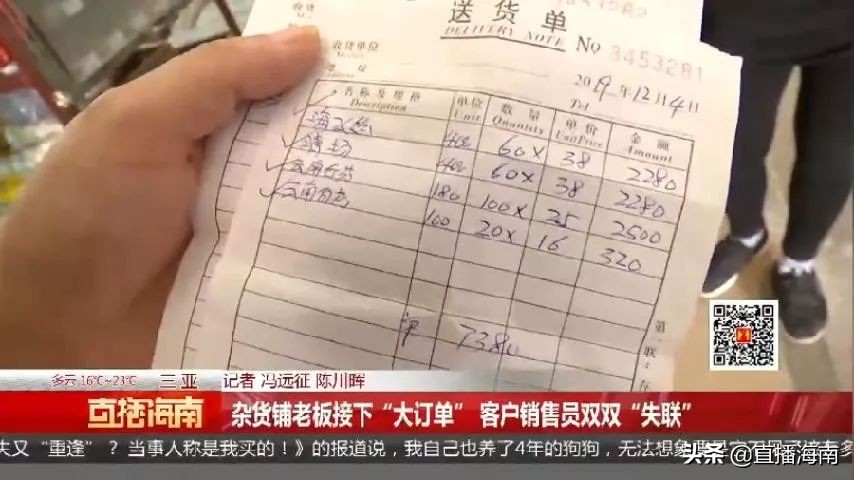 送货单
收货
DELIVERY NOTE
No 3453281
收货单位
2019年12月4日
Tel
名称及规格 单位 数量 单价 金额
Description Unit Quantity Unit Price Amount
海飞丝 400 60X 38 2280
400 60X 38 2280
云南白药 180 100X 25 2500
云南白药 100 20X 16 320
7380
第一联
多云 16℃~23℃ 三亚 记者 冯远征 陈川晖
直播海南 杂货铺老板接下“大订单” 客户销售员双双“失联”
失又“重逢”？当事人称是我买的！》的报道说，我自己也养了4年的狗狗，无法想象
头条 @直播海南